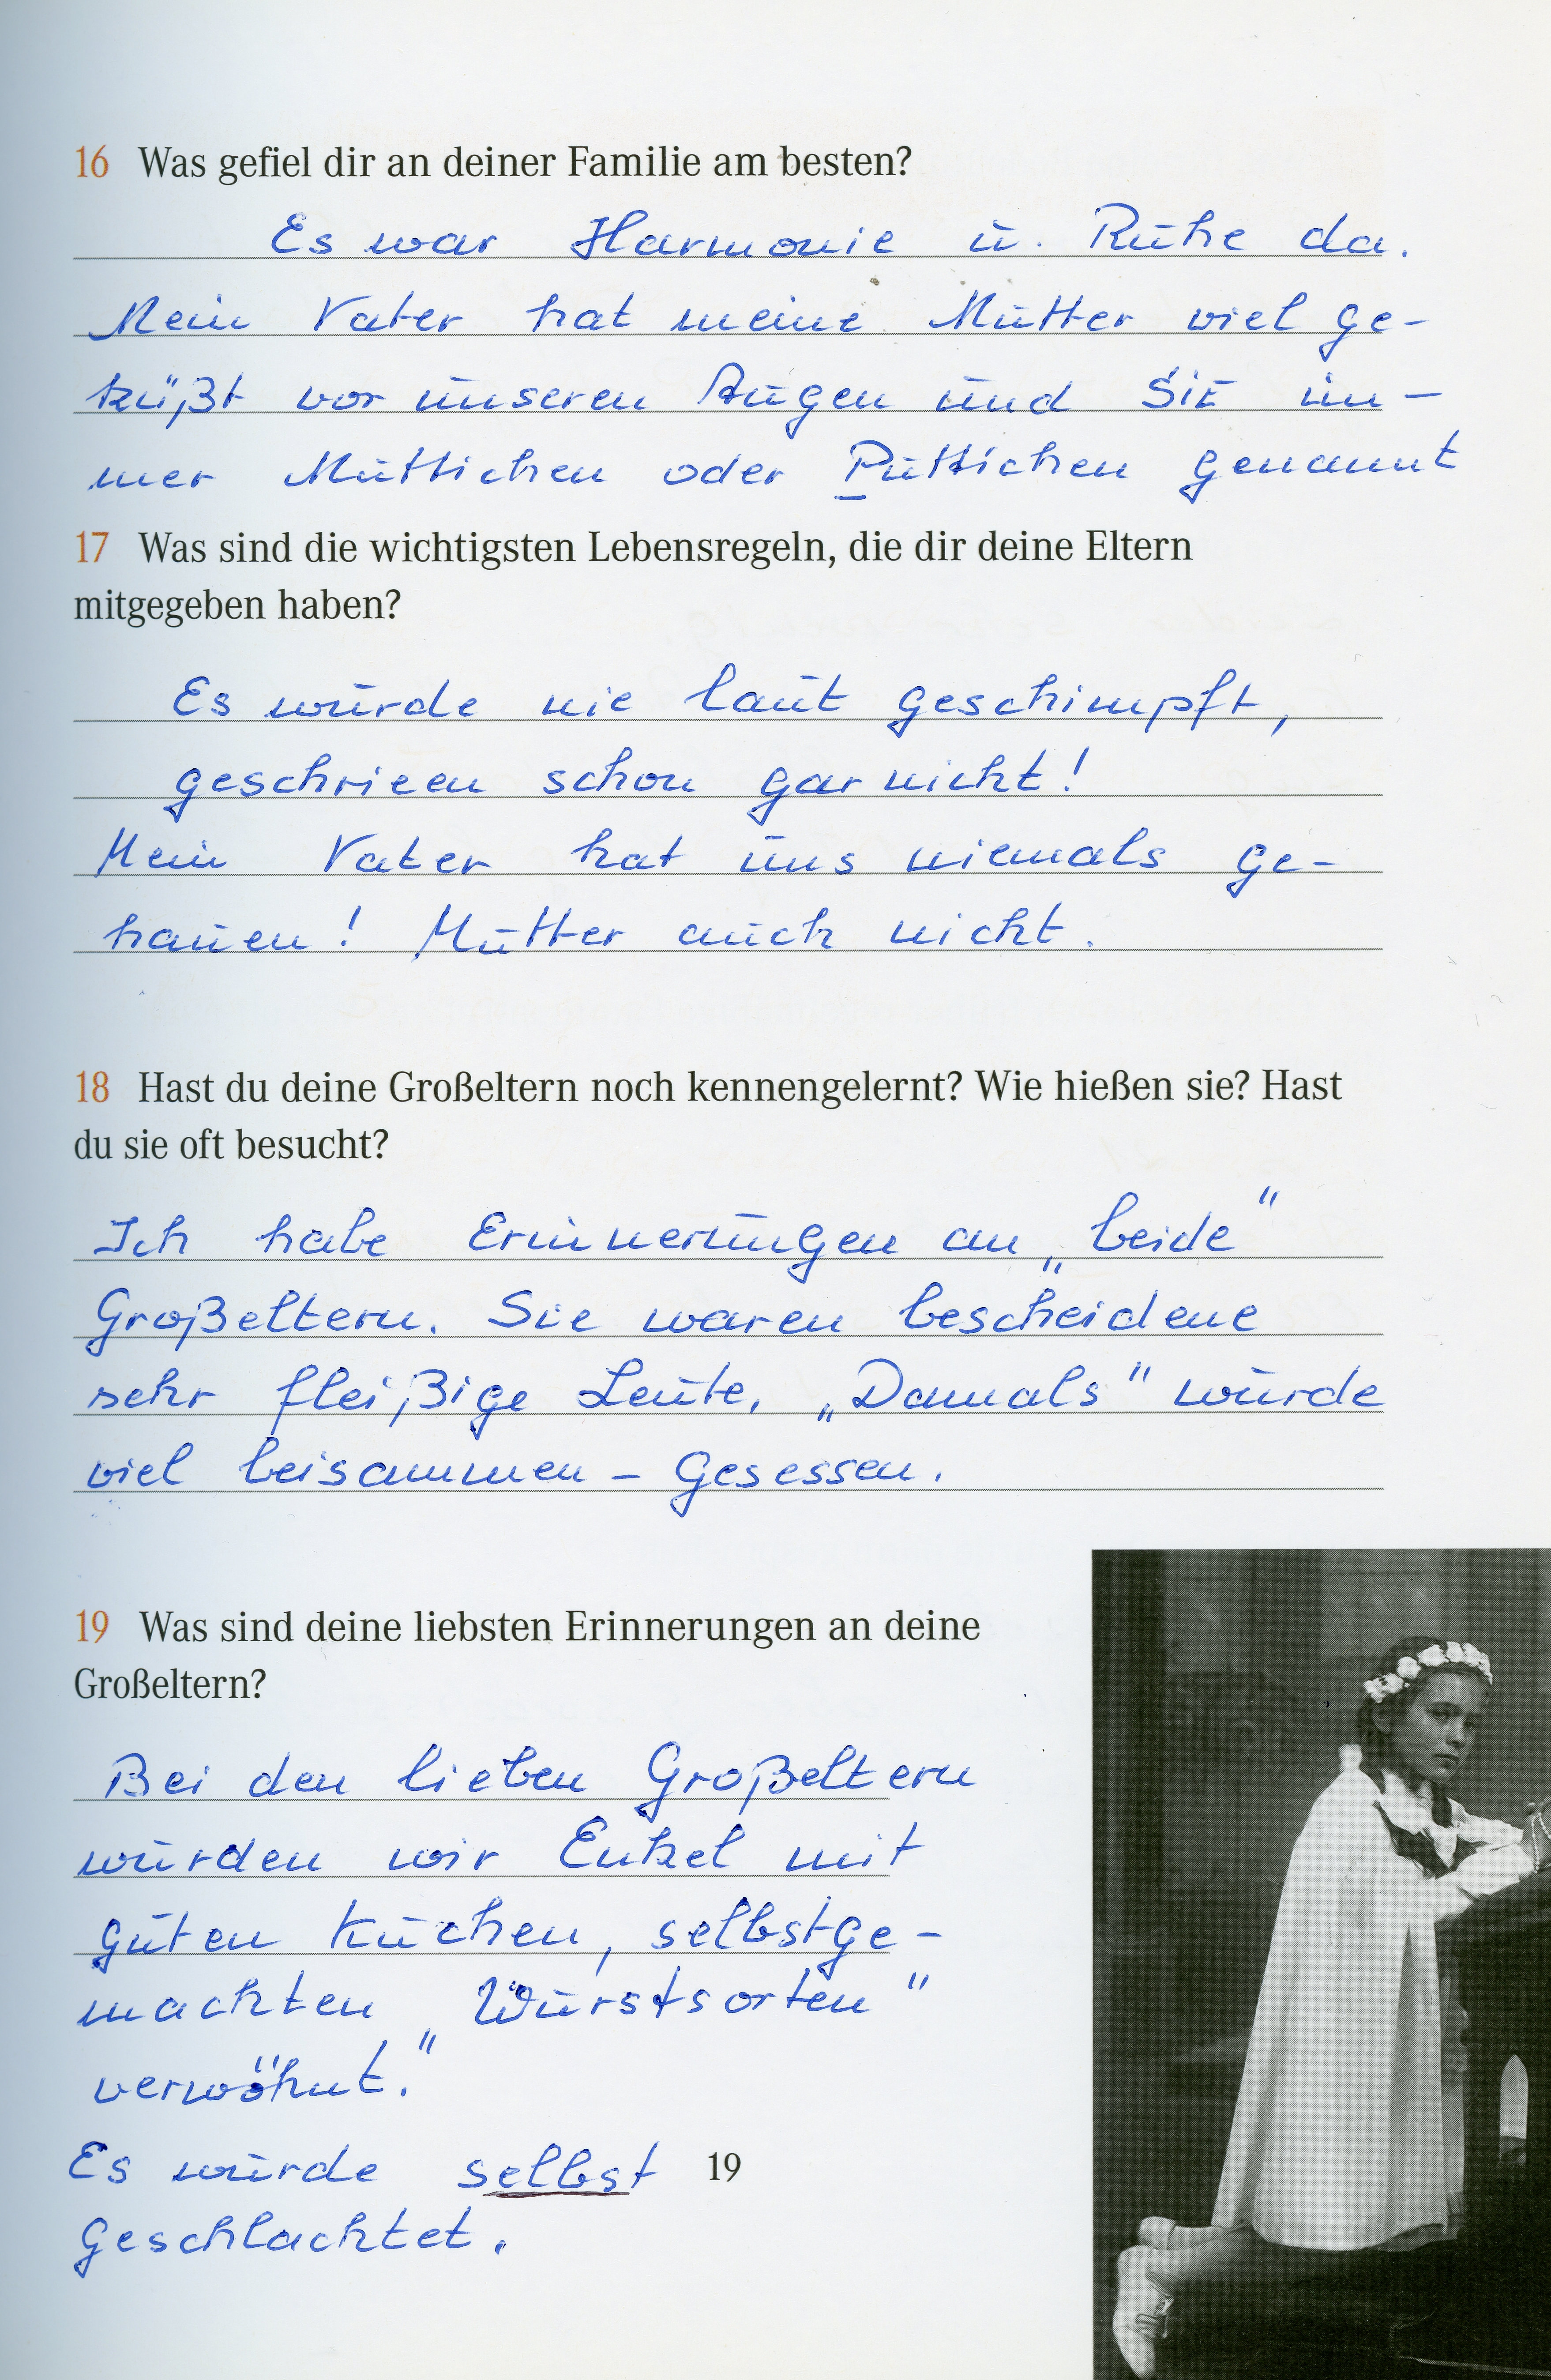 16 Was gefiel dir an deiner Familie am besten?
Es war Harmonie u. Ruhe da.
Mein Vater hat meine Mutter viel ge-
küßt vor unseren Augen und Sie im-
mer Muttichen oder Puttichen genannt
17 Was sind die wichtigsten Lebensregeln, die dir deine Eltern
mitgegeben haben?
Es wurde nie laut geschimpft,
geschrieen schon gar nicht!
Mein Vater hat uns niemals ge-
hauen! Mutter auch nicht.
18 Hast du deine Großeltern noch kennengelernt? Wie hießen sie? Hast
du sie oft besucht?
Ich habe Erinnerungen an „beide"
Großeltern. Sie waren bescheidene
sehr fleißige Leute, „Damals" wurde
viel beisammen - Gesessen.
19 Was sind deine liebsten Erinnerungen an deine
Großeltern?
Bei den lieben Großeltern
wurden wir Enkel mit
guten Kuchen, selbstge-
machten „Wurstsorten"
verwöhnt."
Es wurde selbst
Geschlachtet.
19